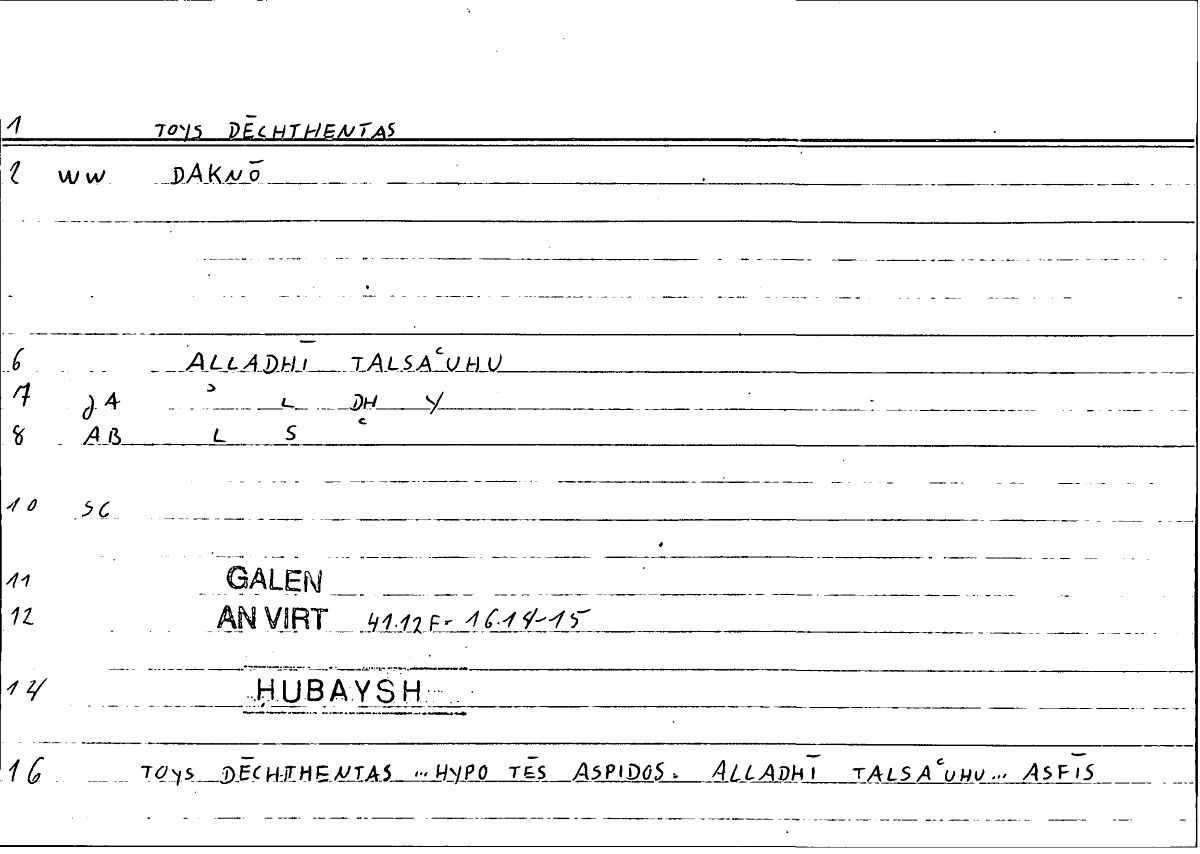 1 TOYS DĒCHTHENTAS
2 WW DAKNŌ
6 ALLADHĪ TALSAʿUHU
7 JA ʾ L DH Y
8 AB L S ʿ
10 SG
11 GALEN
12 AN VIRT 41.12F- 16.14-15
14 ḤUBAYSH
16 TOYS DĒCHTHENTAS ... HYPO TĒS ASPIDOS. ALLADHĪ TALSAʿUHU ... ASFĪS